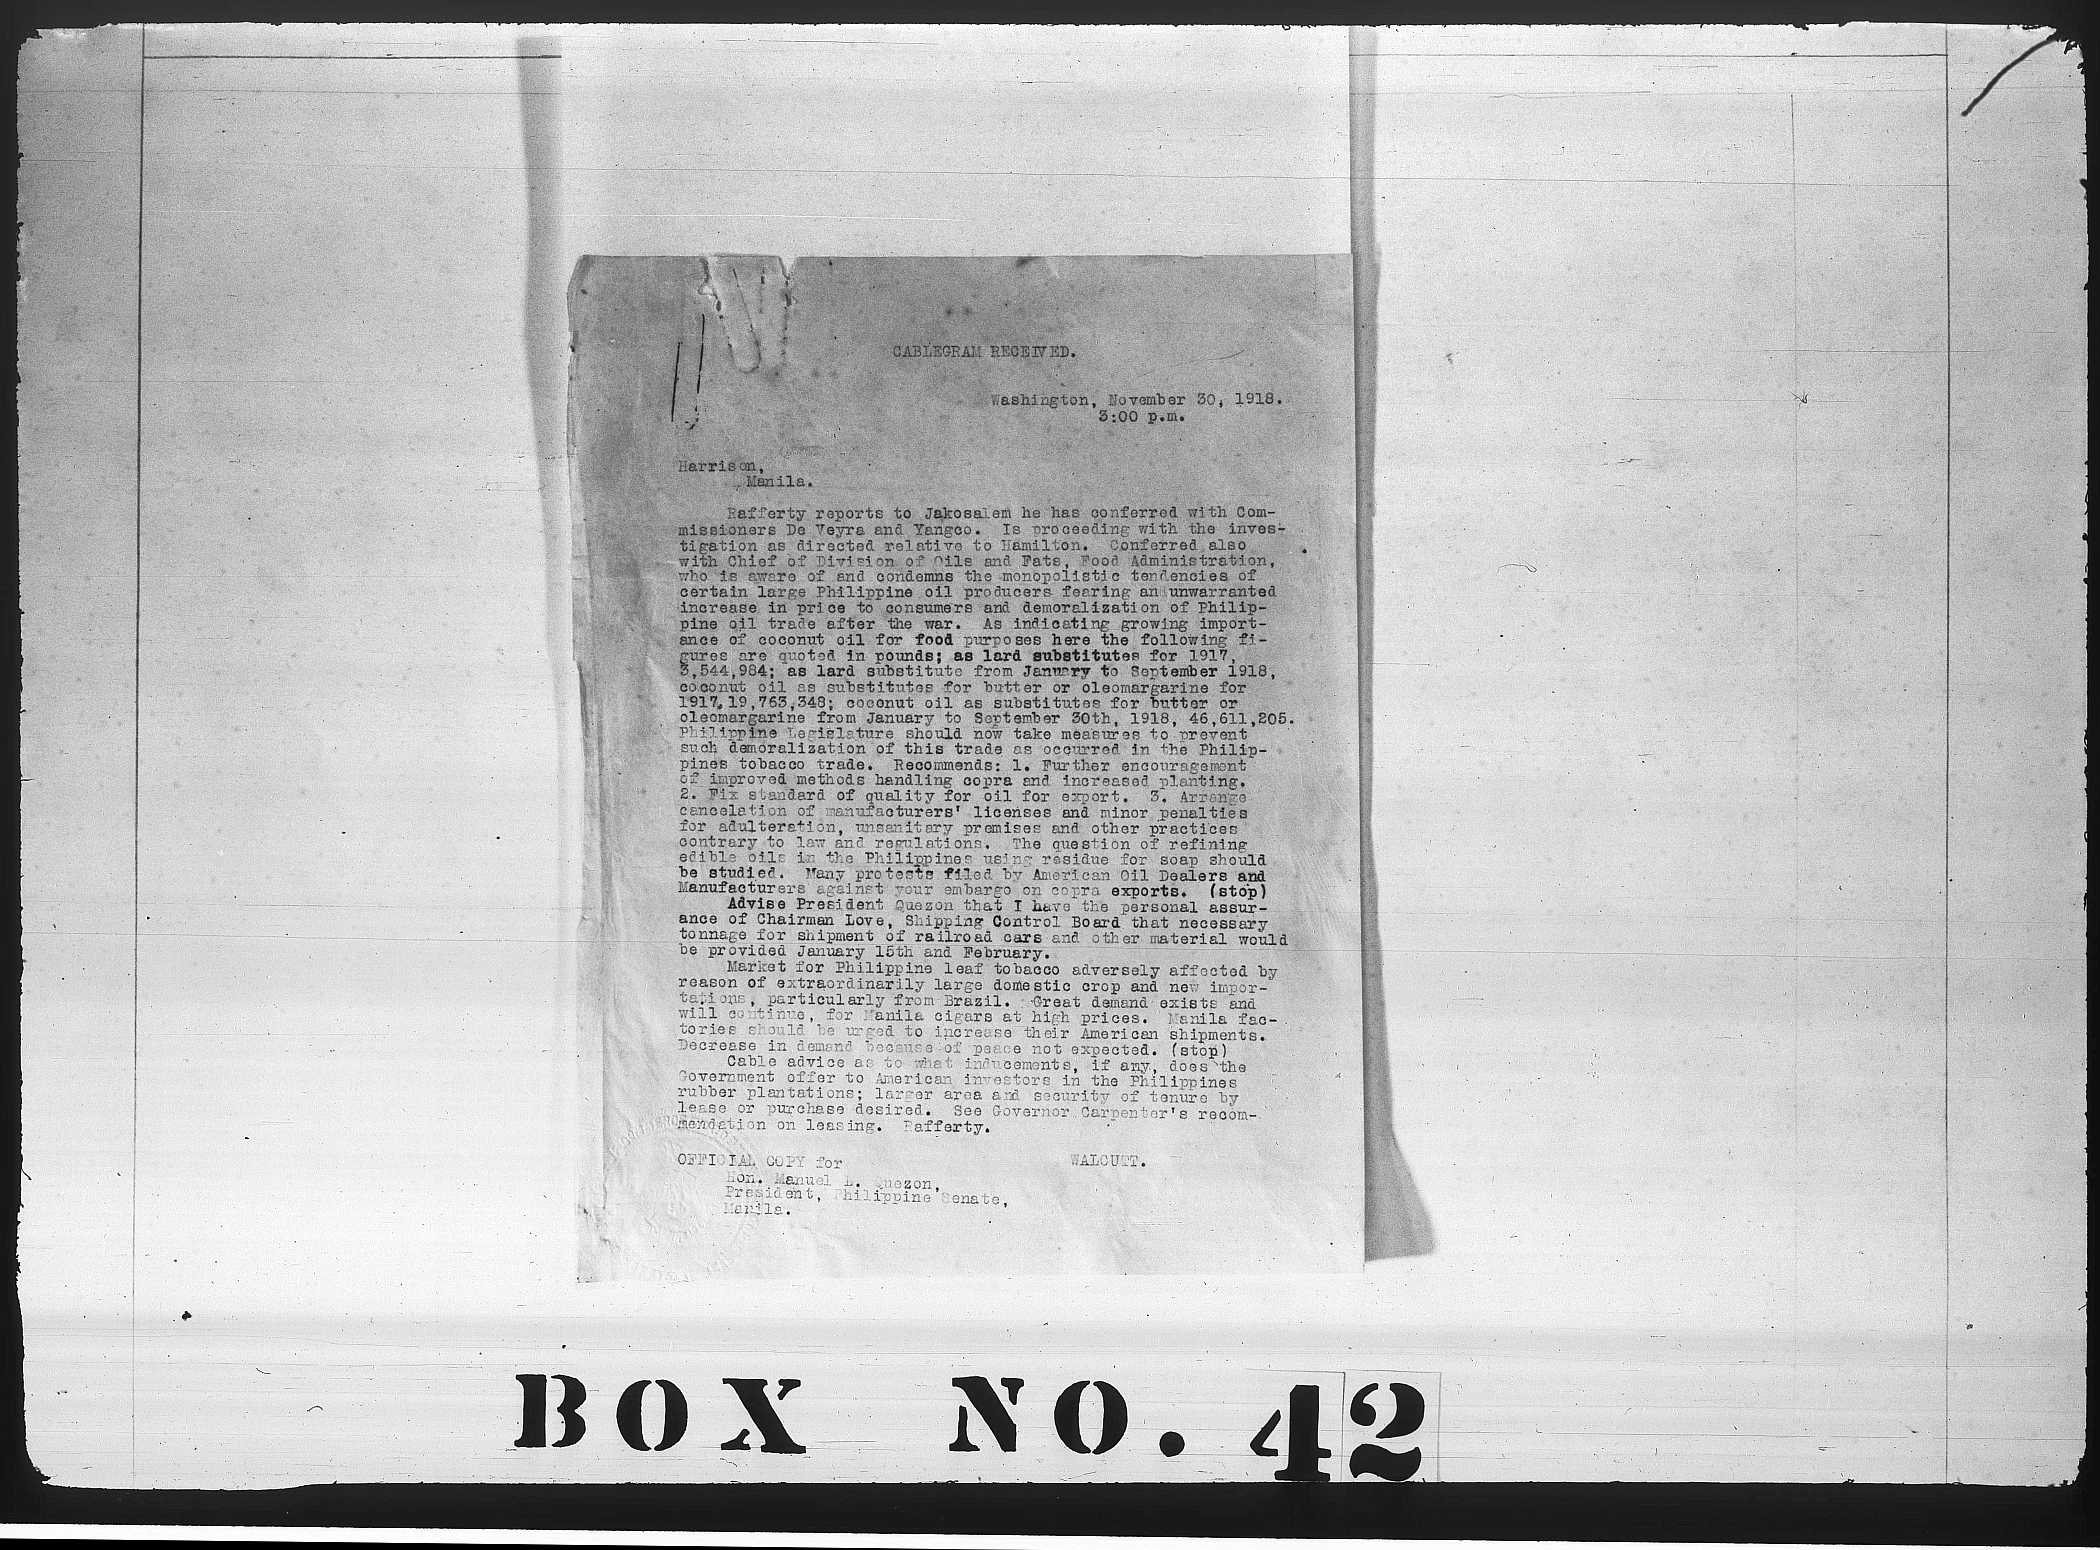 CABLEGRAM RECEIVED.
Washington, November 30, 1918.
3:00 p.m.
Harrison,
Manila.
Rafferty reports to Jakosalem he has conferred with Com-
missioners De Veyra and Yangco. Is proceeding with the inves-
tigation as directed relative to Hamilton. Conferred also
with Chief of Division of Oils and Fats, Food Administration,
who is aware of and condemns the monopolistic tendencies of
certain large Philippine oil producers fearing an unwarranted
increase in price to consumers and demoralization of Philip-
pine oil trade after the war. As indicating growing import-
ance of coconut oil for food purposes here the following fi-
gures are quoted in pounds; as lard substitutes for 1917,
3,544,984; as lard substitute from January to September 1918,
coconut oil as substitutes for butter or oleomargarine for
1917, 19,763,348; coconut oil as substitutes for butter or
oleomargarine from January to September 30th, 1918, 46,611,205.
Philippine Legislature should now take measures to prevent
such demoralization of this trade as occurred in the Philip-
pines tobacco trade. Recommends: 1. Further encouragement
of improved methods handling copra and increased planting.
2. Fix standard of quality for oil for export. 3. Arrange
cancelation of manufacturers' licenses and minor penalties
for adulteration, unsanitary premises and other practices
contrary to law and regulations. The question of refining
edible oils in the Philippines using residue for soap should
be studied. Many protests filed by American Oil Dealers and
Manufacturers against your embargo on copra exports. (stop)
Advise President Quezon that I have the personal assur-
ance of Chairman Love, Shipping Control Board that necessary
tonnage for shipment of railroad cars and other material would
be provided January 15th and February.
Market for Philippine leaf tobacco adversely affected by
reason of extraordinarily large domestic crop and new impor-
tations, particularly from Brazil. Great demand exists and
will continue, for Manila cigars at high prices. Manila fac-
tories should be urged to increase their American shipments.
Decrease in demand because of peace not expected. (stop)
Cable advice as to what inducements, if any, does the
Government offer to American investors in the Philippines
rubber plantations; larger area and security of tenure by
lease or purchase desired. See Governor Carpenter's recom-
mendation on leasing. Rafferty.
WALCUTT.
OFFICIAL COPY for
Hon. Manuel L. Quezon,
President, Philippine Senate,
Manila.
BOX NO. 42